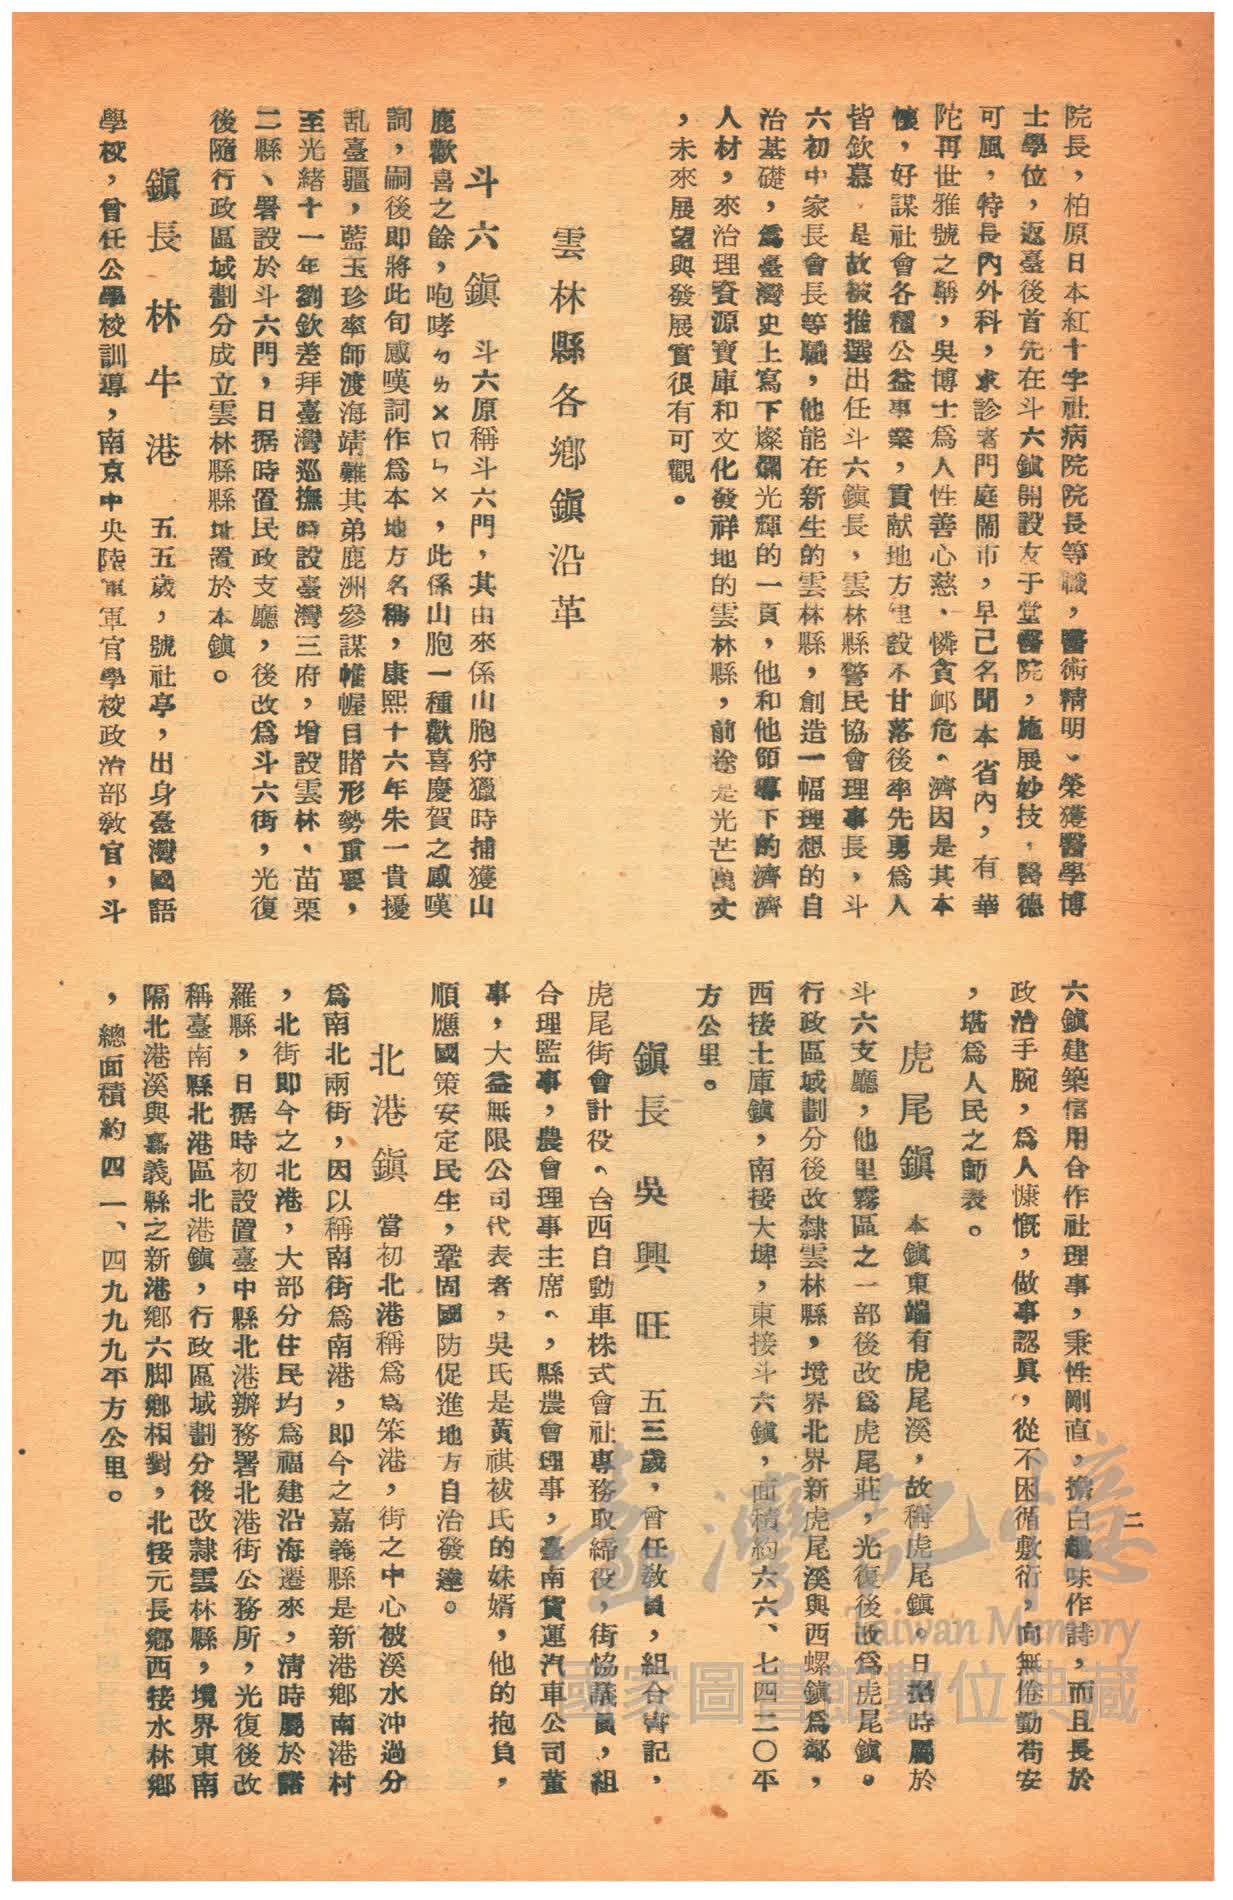 院長，柏原日本紅十字社病院院長等職，醫術精明、榮獲醫學博
士學位，返臺後首先在斗六鎮開設友于堂醫院，施展妙技，醫德
可風，特長內外科，求診者門庭鬧市，早已名聞本省內，有華
陀再世雅號之稱，吳博士為人性善心慈、憐貪邺危、濟因是其本
懷，好謀社會各種公益事業，貢献地方建設不甘落後率先勇為人
皆欽慕，是故被推選出任斗六鎮長，雲林縣警民協會理事長，斗
六初中家長會長等職，他能在新生的雲林縣，創造一幅理想的自
治基礎，為臺灣史上寫下燦爛光輝的一頁，他和他領導下的濟濟
人材，來治理資源寶庫和文化發祥地的雲林縣，前途是光芒萬丈
，未來展望與發展實很有可觀。
雲林縣各鄉鎮沿革
斗六鎮　斗六原稱斗六門，其由來係山胞狩獵時捕獲山
鹿歡喜之餘，咆哮ㄉㄌㄨㄇㄣㄨ，此係山胞一種歡喜慶賀之感嘆
詞，嗣後即將此句感嘆詞作為本地方名稱，康熙十六年朱一貴擾
乱臺疆，藍玉珍率師渡海靖難其弟鹿洲參謀帷幄目睹形勢重要，
至光緒十一年劉欽差拜臺灣巡撫時設臺灣三府，增設雲林、苗栗
二縣、署設於斗六門，日据時置民政支廳，後改為斗六街，光復
後隨行政區域劃分成立雲林縣縣址置於本鎮。
鎮長　林牛港　五五歲，號社亭，出身臺灣國語
學校，曾任公學校訓導，南京中央陸軍軍官學校政治部教官，斗
六鎮建築信用合作社理事，秉性剛直，擔白趣味作詩，而且長於
政治手腕，為人慷慨，做事認真，從不困循敷衍，向無倦勤苟安
，堪為人民之師表。
虎尾鎮　本鎮東端有虎尾溪，故稱虎尾鎮。日据時屬於
斗六支廳，他里霧區之一部後改為虎尾莊，光復後改為虎尾鎮。
行政區域劃分後改隸雲林縣，境界北界新虎尾溪與西螺鎮為鄰，
西接土庫鎮，南接大埤，東接斗六鎮，面積約六六、七四二〇平
方公里。
鎮長　吳興旺　五三歲，曾任教員，組合書記，
虎尾街會計役、台西自動車株式會社專務取締役，街協議員，組
合理監事，農會理事主席、，縣農會理事，臺南貨運汽車公司董
事，大益無限公司代表者，吳氏是黃祺祓氏的妹婿，他的抱負，
順應國策安定民生，鞏固國防促進地方自治發達。
北港鎮　當初北港稱為為笨港，街之中心被溪水沖過分
為南北兩街，因以稱南街為南港，即今之嘉義縣是新港鄉南港村
，北街即今之北港，大部分住民均為福建沿海遷來，清時屬於諸
羅縣，日据時初設置臺中縣北港辦務署北港街公務所，光復後改
稱臺南縣北港區北港鎮，行政區域劃分後改隸雲林縣，境界東南
隔北港溪與嘉義縣之新港鄉六脚鄉相對，北接元長鄉西接水林鄉
，總面積約四一、四九九九平方公里。
二
臺灣記憶
Taiwan Memory
國家圖書館數位典藏